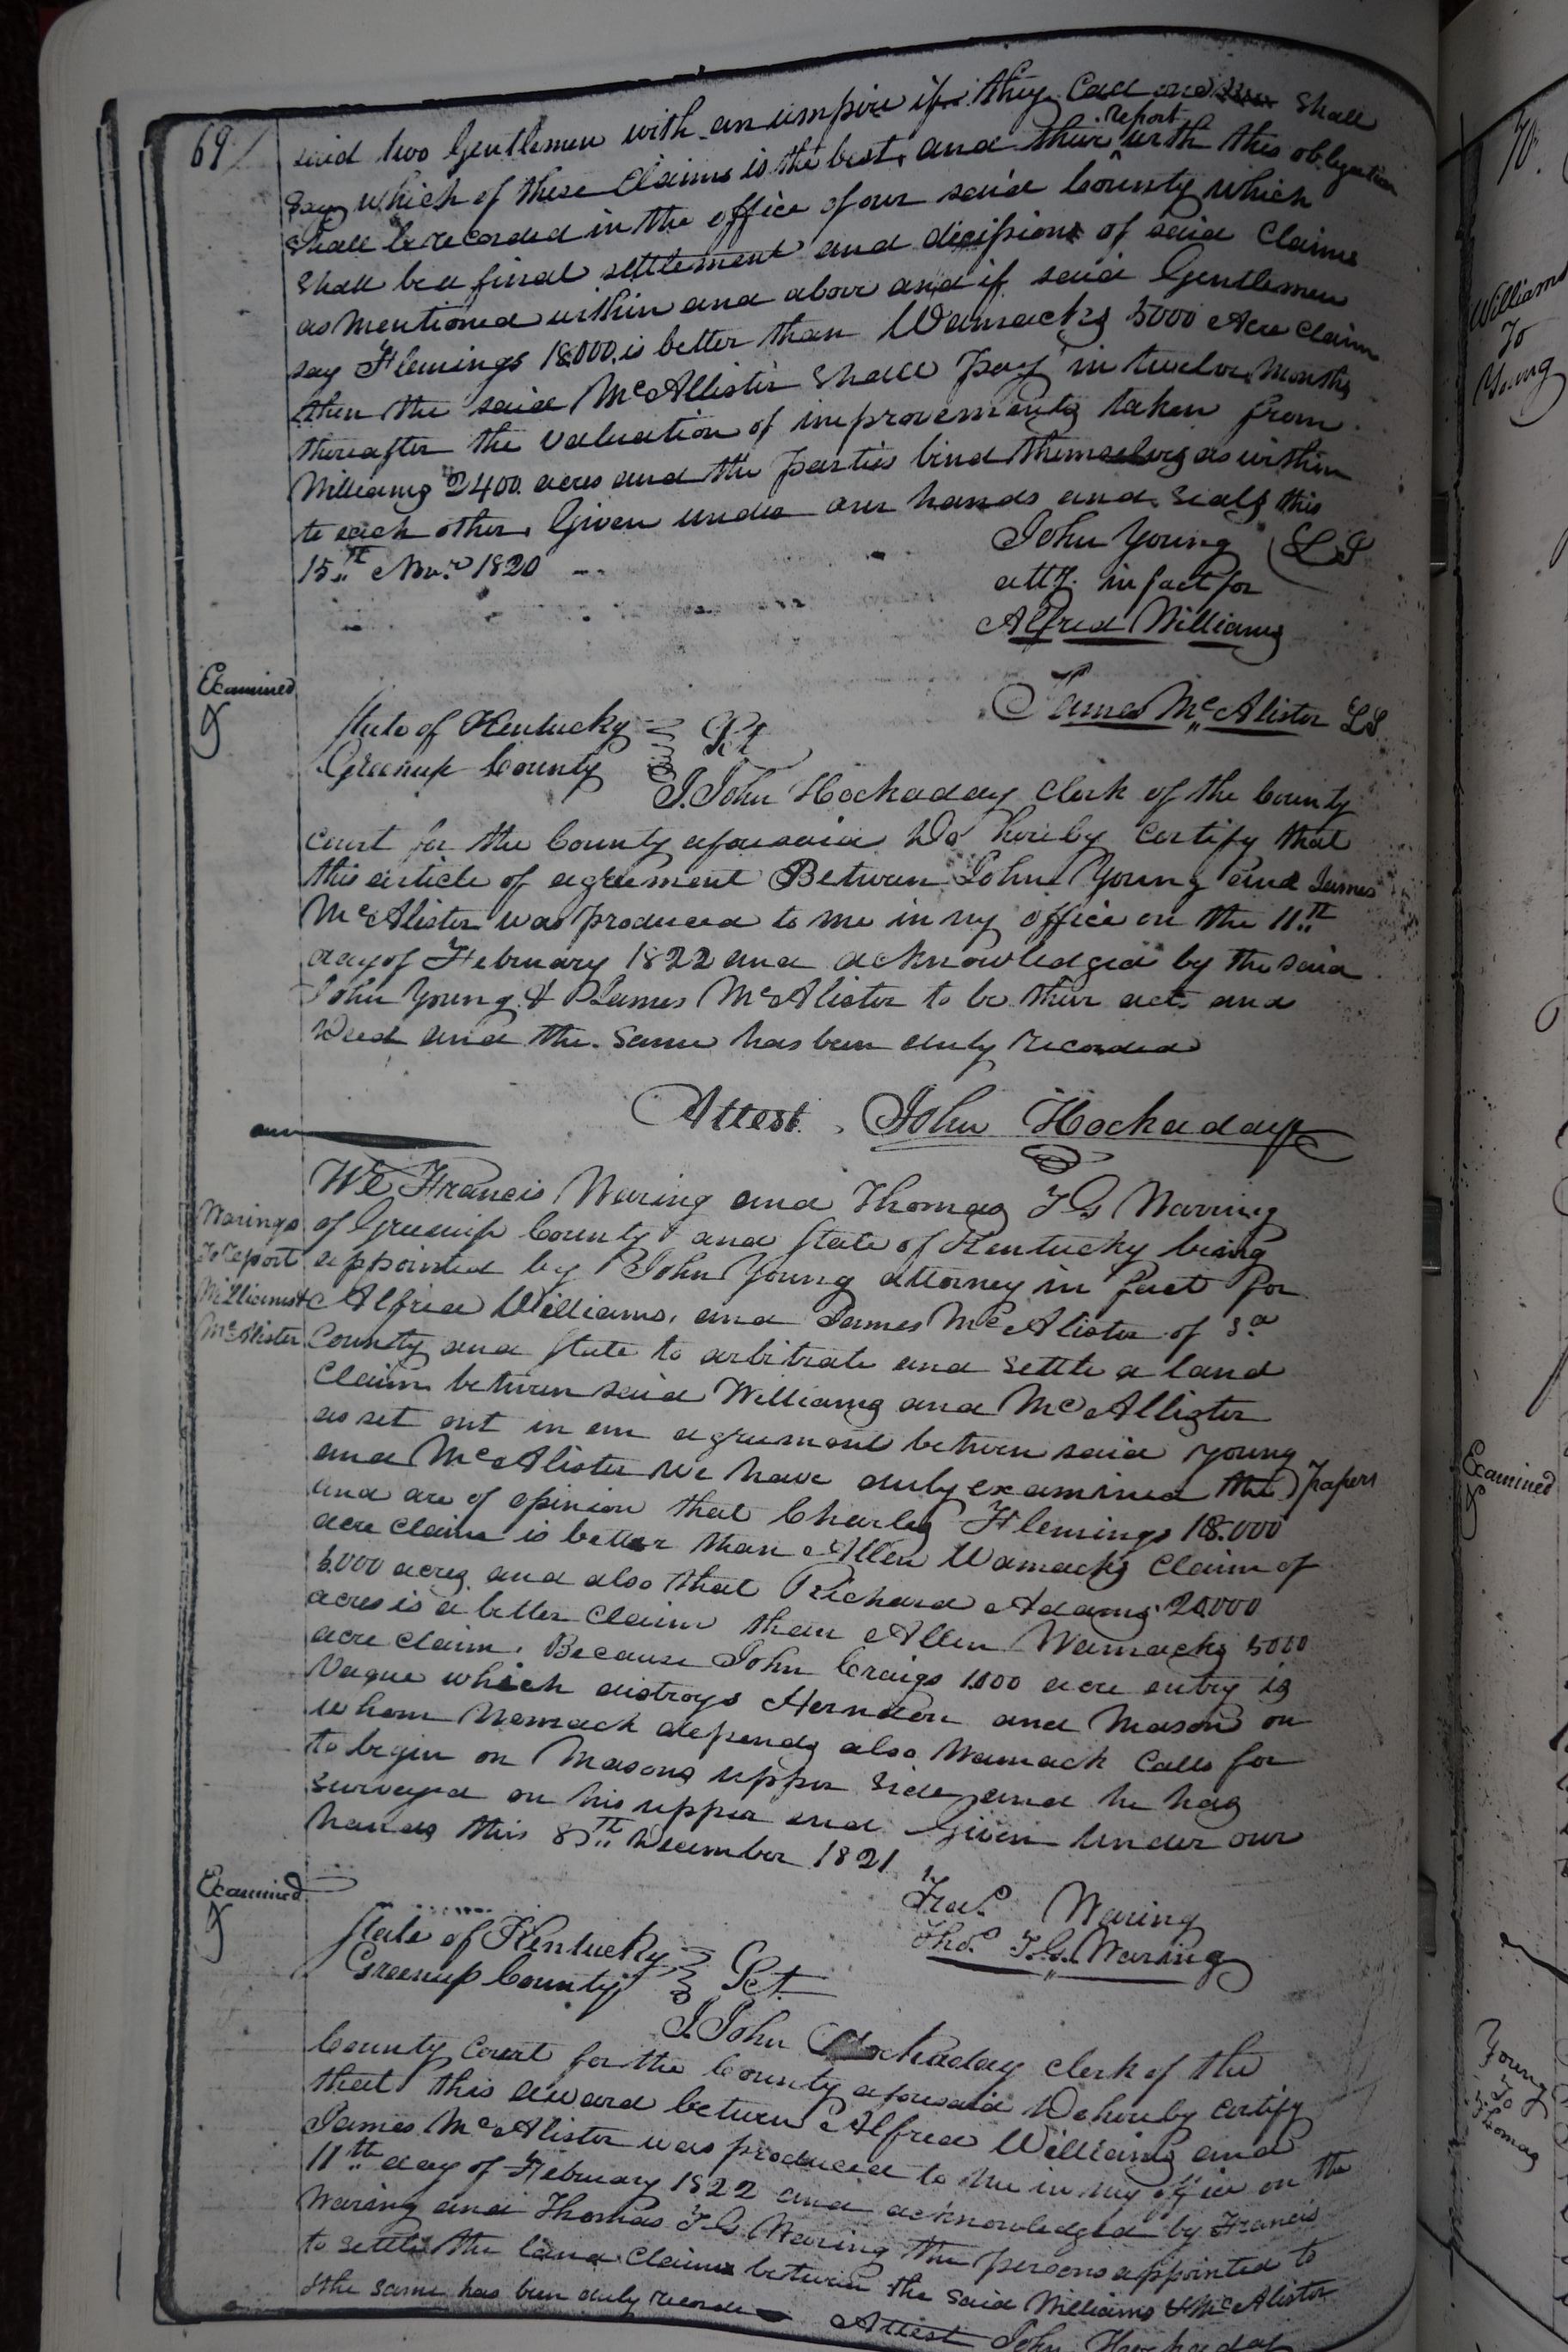 69
said two Gentlemen with an umpire if they Call one shall
Say which of these Claims is the best, and their report with this obligation
Shall be recorded in the office of our said County which
Shall be a final settlement and decission of said Claims
as mentioned within and above and if said Gentlemen
say Flemings 18000 is better than Wamacks 5000 Acre Claim
then the said McAllister Shall pay in twelve months
thereafter the valuation of improvements taken from
Williams 2400 acres and the parties bind themselves as within
to each other. Given under our hands and Seals this
15th Novr 1820
John Young LS
atty. in fact for
Alfred Williams
James McAlister LS
Examined
State of Kentucky
Greenup County Sct
I John Hockaday Clerk of the County
Court for the County aforesaid Do hereby Certify that
this article of agreement Between John Young and James
McAlister was produced to me in my office on the 11th
day of February 1822 and acknowledged by the said
John Young & James McAlister to be their act and
Deed and the Same has been duly recorded
Attest. John Hockaday
Warings
To report
Williams &
McAlister
We Francis Waring and Thomas T G Waring
of Greenup County and State of Kentucky being
appointed by John Young attorney in fact for
Alfred Williams, and James McAlister of sd
County and State to arbitrate and settle a land
Claim between said Williams and McAllister
as set out in an agreement between said Young
and McAlister we have duly examined the papers
and are of opinion that Charles Flemings 18.000
acre claim is better than Allen Wamacks Claim of
5.000 acres and also that Richard Adams 20.000
acres is a better Claim than Allen Wamacks 5000
acre claim. Because John Craigs 1.000 acre entry is
Vague which distroys Herndon and Mason on
whom Wamack depends also Wamack Calls for
to begin on Masons upper Side and he has
surveyed on his upper end Given under our
hands this 8th December 1821
Fras. Waring
Thos. T.G. Waring
Examined
State of Kentucky
Greenup County Sct.
I John Hockaday Clerk of the
County Court for the County aforesaid Do hereby certify
that this award between Alfred Williams and
James McAlister was produced to me in my office on the
11th day of February 1822 and acknowledged by Francis
Waring and Thomas T G Waring the persons appointed to
to settle the land Claims between the said Williams & McAlister
& the same has been duly recorded
Attest John Hockaday
70.
Williams
To
Young
Examined
Young
To
Thomas